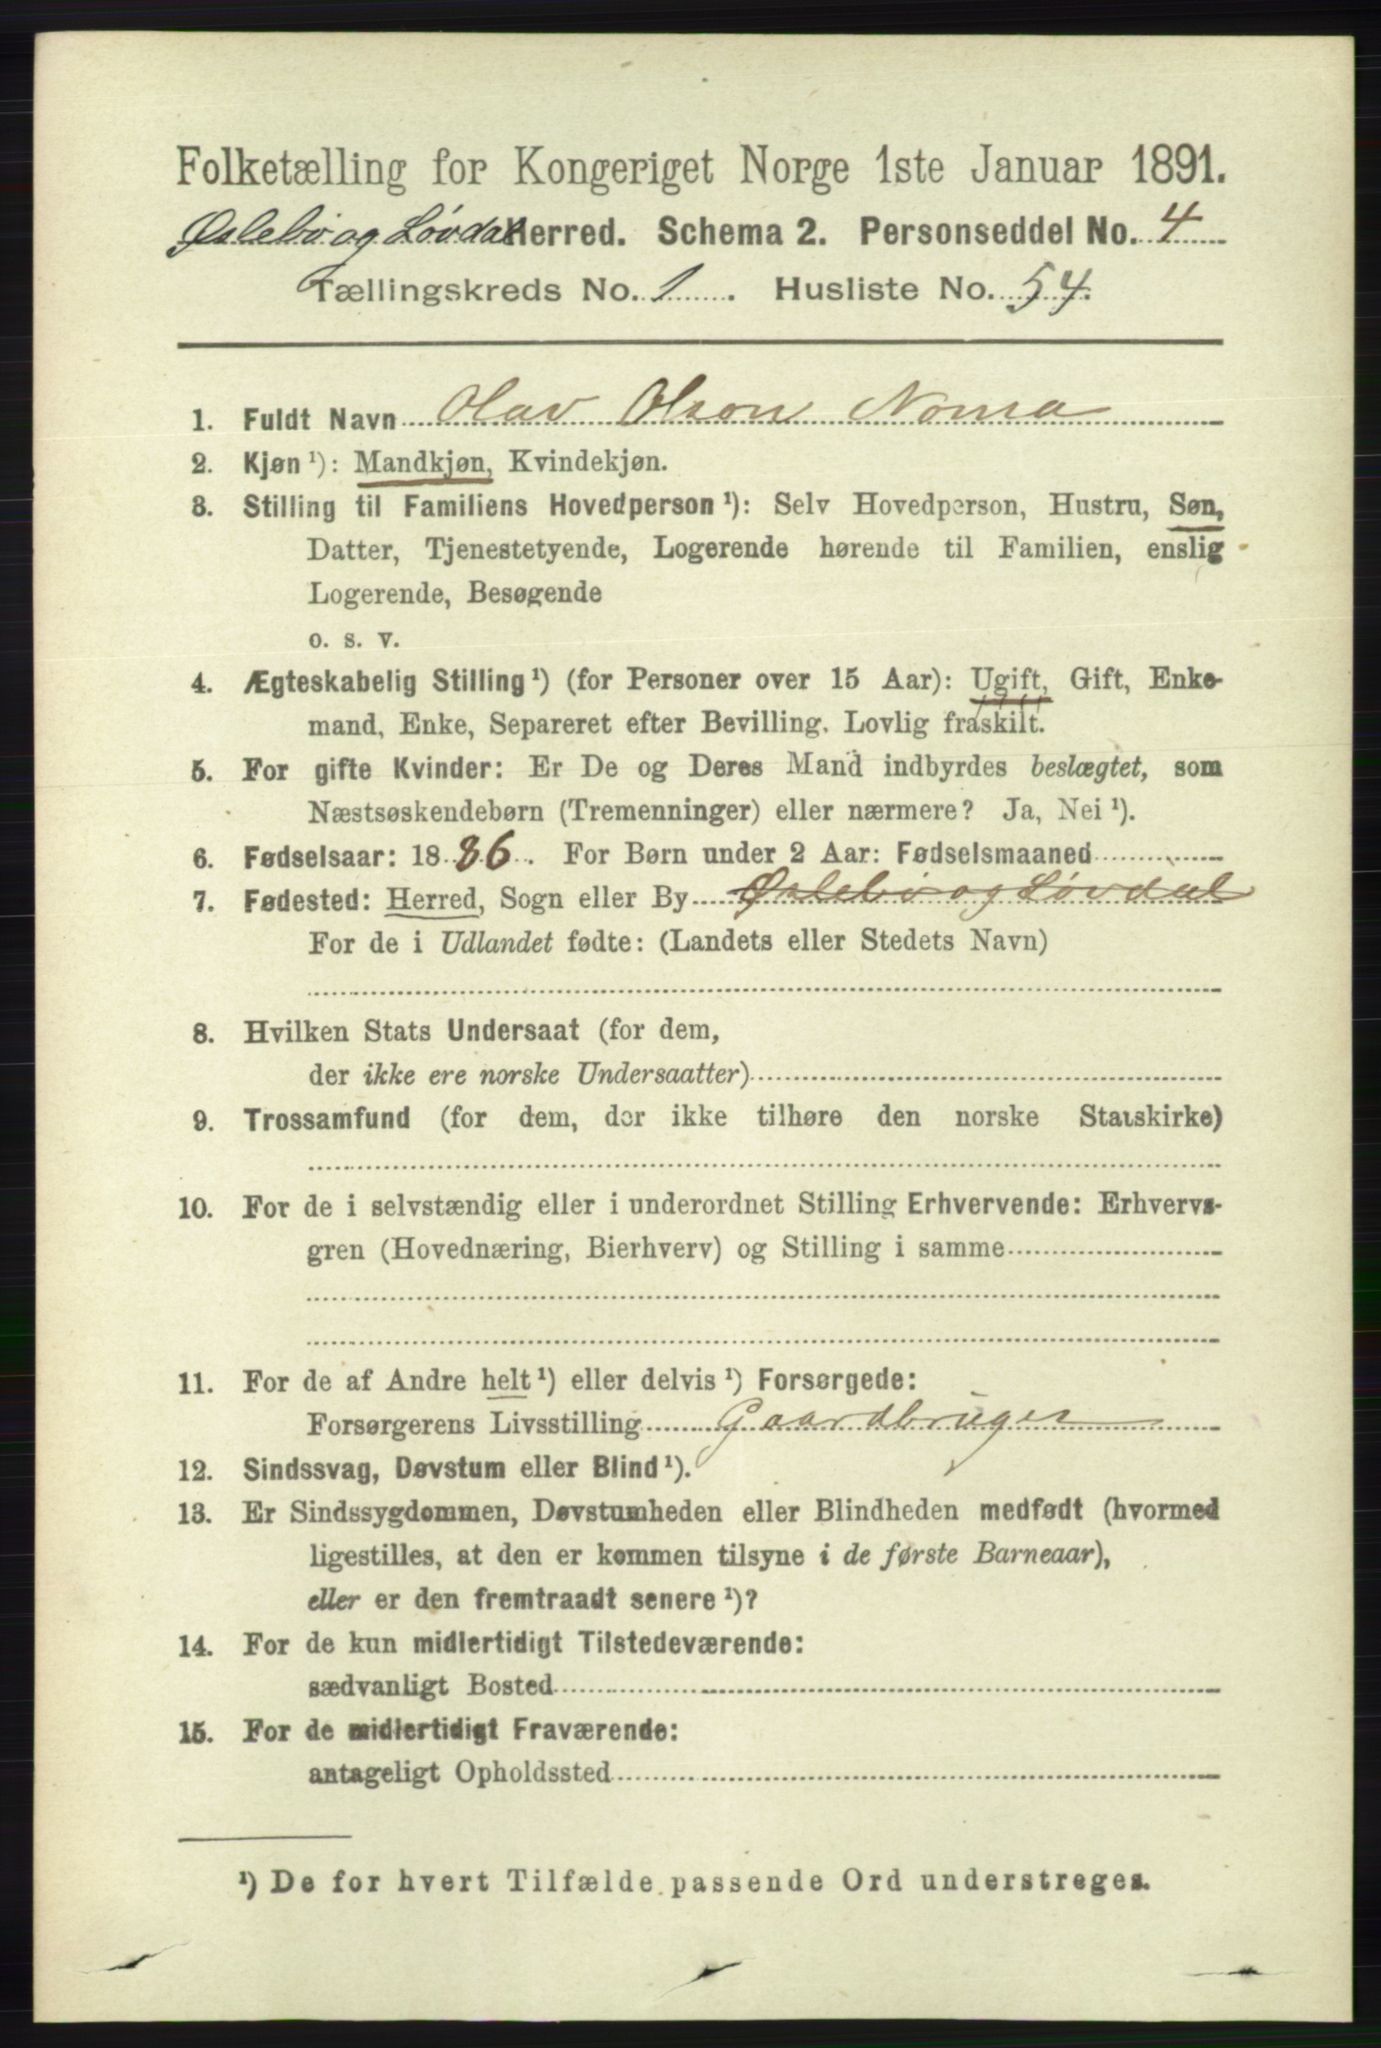 Folketælling for Kongeriget Norge 1ste Januar 1891.
Øslebø og Løvdal Herred. Schema 2. Personseddel No. 4
Tællingskreds No. 1. Husliste No. 54.
1. Fuldt Navn Olav Olson Noma
2. Kjøn ¹): Mandkjøn, Kvindekjøn.
3. Stilling til Familiens Hovedperson ¹): Selv Hovedperson, Hustru, Søn,
Datter, Tjenestetyende, Logerende hørende til Familien, enslig
Logerende, Besøgende
o. s. v.
4. Ægteskabelig Stilling ¹) (for Personer over 15 Aar): Ugift, Gift, Enke-
mand, Enke, Separeret efter Bevilling. Lovlig fraskilt.
5. For gifte Kvinder: Er De og Deres Mand indbyrdes beslægtet, som
Næstsøskendebørn (Tremenninger) eller nærmere? Ja, Nei ¹).
6. Fødselsaar: 1886. For Børn under 2 Aar: Fødselsmaaned
7. Fødested: Herred, Sogn eller By Øslebø og Løvdal
For de i Udlandet fødte: (Landets eller Stedets Navn)
8. Hvilken Stats Undersaat (for dem,
der ikke ere norske Undersaatter)
9. Trossamfund (for dem, der ikke tilhøre den norske Statskirke)
10. For de i selvstændig eller i underordnet Stilling Erhvervende: Erhvervs-
gren (Hovednæring, Bierhverv) og Stilling i samme
11. For de af Andre helt ¹) eller delvis ¹) Forsørgede:
Forsørgerens Livsstilling Gaardbruger
12. Sindssvag, Døvstum eller Blind ¹).
13. Er Sindssygdommen, Døvstumheden eller Blindheden medfødt (hvormed
ligestilles, at den er kommen tilsyne i de første Barneaar),
eller er den fremtraadt senere ¹)?
14. For de kun midlertidigt Tilstedeværende:
sædvanligt Bosted
15. For de midlertidigt Fraværende:
antageligt Opholdssted
¹) De for hvert Tilfælde passende Ord understreges.